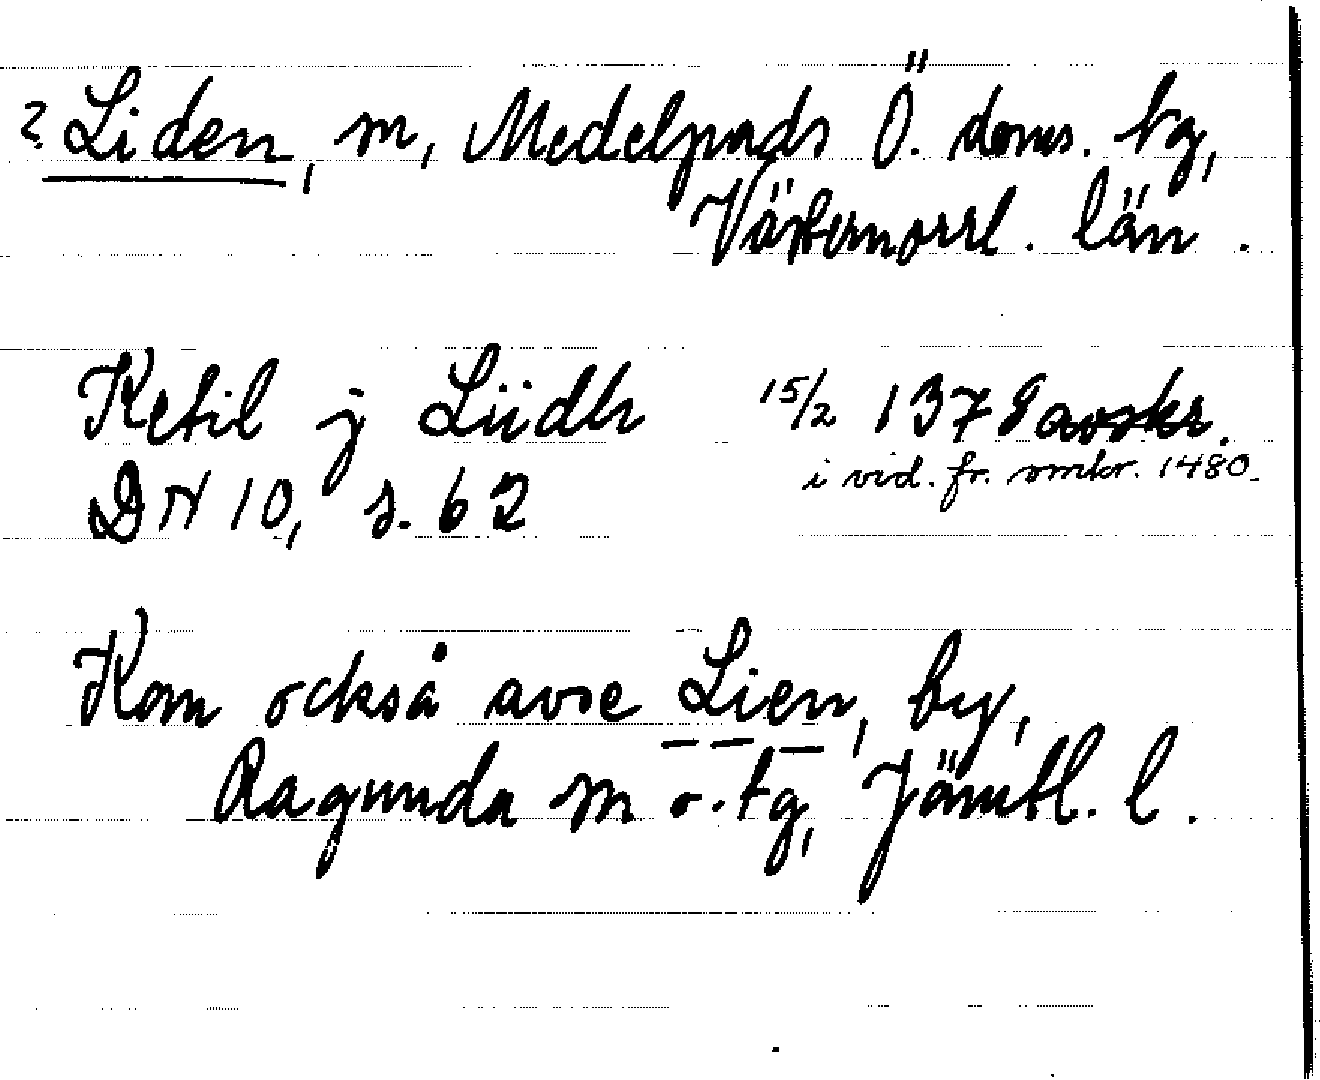 ? Liden, m, Medelpads Ö. doms. tg,
Västernorrl. län.
Ketil j Liidh 15/2 1378 avskr.
i vid. fr. smkr. 1480.
DN 10, s. 62
Kan också avse Lien, by,
Ragunda sn o. tg, Jämtl. l.